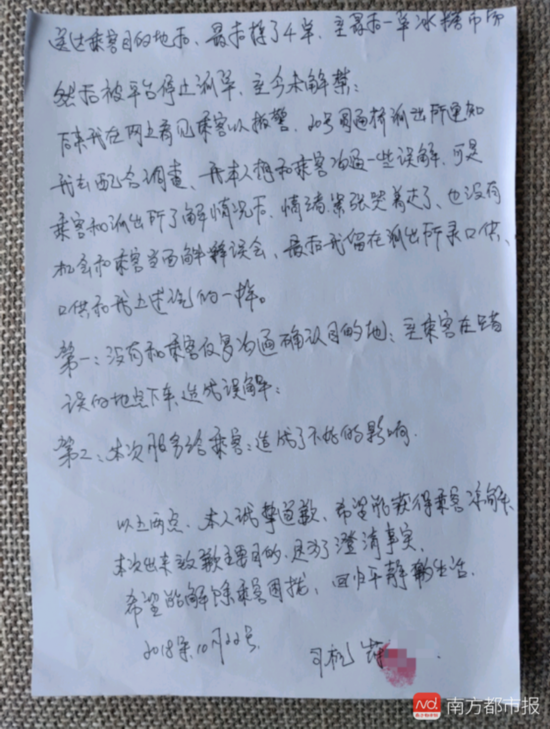 送达乘客目的地后、最后接了4单，至最后一单冰糖
然后被平台停止派单，至今未解禁；
后来我在网上看见乘客以报警，20号同通桥派出所通知
我去配合调查、我本人想和乘客沟通一些误解，可是
乘客和派出所了解情况后，情绪紧张哭着走了、也没有
机会和乘客当面解释误会、最后我留在派出所录口供、
口供和我上述说的一样。
第一：没有和乘客反复沟通确认目的地；至乘客在错
误的地点下车造成误解；
第二：本次服务给乘客：造成了不好的影响．
以上两点．本人诚挚道歉、希望能获得乘客谅解、
本次出来致歉主要目的．是为了澄清事实、
希望能解除乘客困扰，回归平静的生活．
2018年10月22号 司机
南方都市报